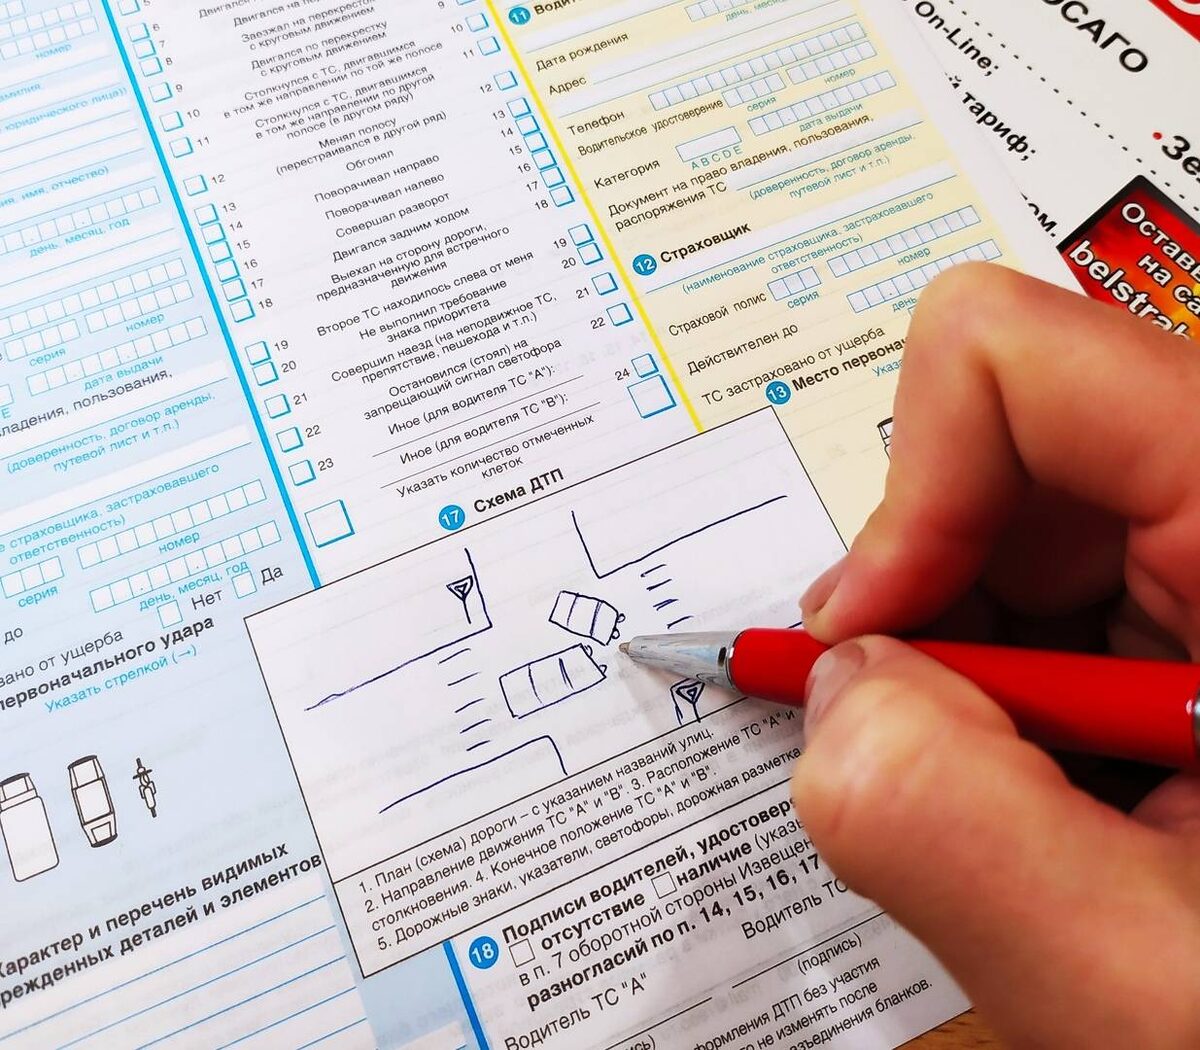 номер
амилия,
юридического лица))
имя, отчество)
день, месяц, год
номер
серия
дата выдачи
ладения, пользования,
(доверенность, договор аренды,
путевой лист и т.п.)
е страховщика, застраховавшего
ответственность)
номер
серия
день, месяц, год
до
Нет
Да
вано от ущерба
первоначального удара
Указать стрелкой (→)
Характер и перечень видимых
врежденных деталей и элементов
5
6
7
8
9
10
11
12
13
14
15
16
17
18
19
20
21
22
23
Заезжал на перекресток
с круговым движением
Двигался по перекрестку
с круговым движением
Столкнулся с ТС, двигавшимся
в том же направлении по той же полосе
Столкнулся с ТС, двигавшимся
в том же направлении по другой
полосе (в другом ряду)
Менял полосу
(перестраивался в другой ряд)
Обгонял
Поворачивал направо
Поворачивал налево
Совершал разворот
Двигался задним ходом
Выехал на сторону дороги,
предназначенную для встречного
движения
Второе ТС находилось слева от меня
Не выполнил требование
знака приоритета
Совершил наезд (на неподвижное ТС,
препятствие, пешехода и т.п.)
Остановился (стоял) на
запрещающий сигнал светофора
Иное (для водителя ТС "А"):
Иное (для водителя ТС "В"):
Указать количество отмеченных
клеток
9
10
11
12
13
14
15
16
17
18
19
20
21
22
24
11
день, месяц
Дата рождения
Адрес
Телефон
Водительское удостоверение
серия
номер
Категория
A B C D E
дата выдачи
Документ на право владения, пользования,
распоряжения ТС
(доверенность, договор аренды,
путевой лист и т.п.)
12 Страховщик
(наименование страховщика, застраховавшего
ответственность)
Страховой полис
серия
номер
Действителен до
день
ТС застраховано от ущерба
13 Место первонач
Указ
17 Схема ДТП
1. План (схема) дороги – с указанием названий улиц.
2. Направление движения ТС "А" и "В". 3. Расположение ТС "А" и
столкновения. 4. Конечное положение ТС "А" и "В".
5. Дорожные знаки, указатели, светофоры, дорожная разметка
18 Подписи водителей, удостоверя
отсутствие
наличие (указа
в п. 7 оборотной стороны Извещен
разногласий по п. 14, 15, 16, 17
Водитель ТС "А"
Водитель ТС
(подпись)
формления ДТП без участия
не изменять после
разъединения бланков.
ОСАГО
On-Line;
тариф;
Зел
Остав
на са
belstrak